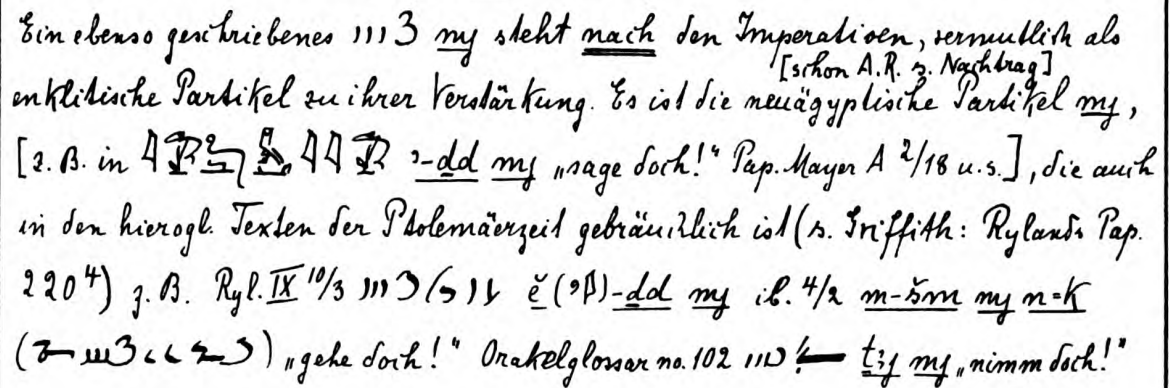 Ein ebenso geschriebenes my steht nach den Imperativen, vermutlich als
[schon A.R. s. Nachtrag]
enklitische Partikel zu ihrer Verstärkung. Es ist die neuägyptische Partikel my,
[z. B. in ı͗-dd my „sage doch!“ Pap. Mayer A 2/18 u.s.], die auch
in den hierogl. Texten der Ptolemäerzeit gebräuchlich ist (s. Griffith: Rylands Pap.
220⁴) z. B. Ryl. IX 10/3 -dd my ib. 4/2 m-šm my n=k
„gehe doch!“ Orakelglossar no. 102 my „nimm doch!“